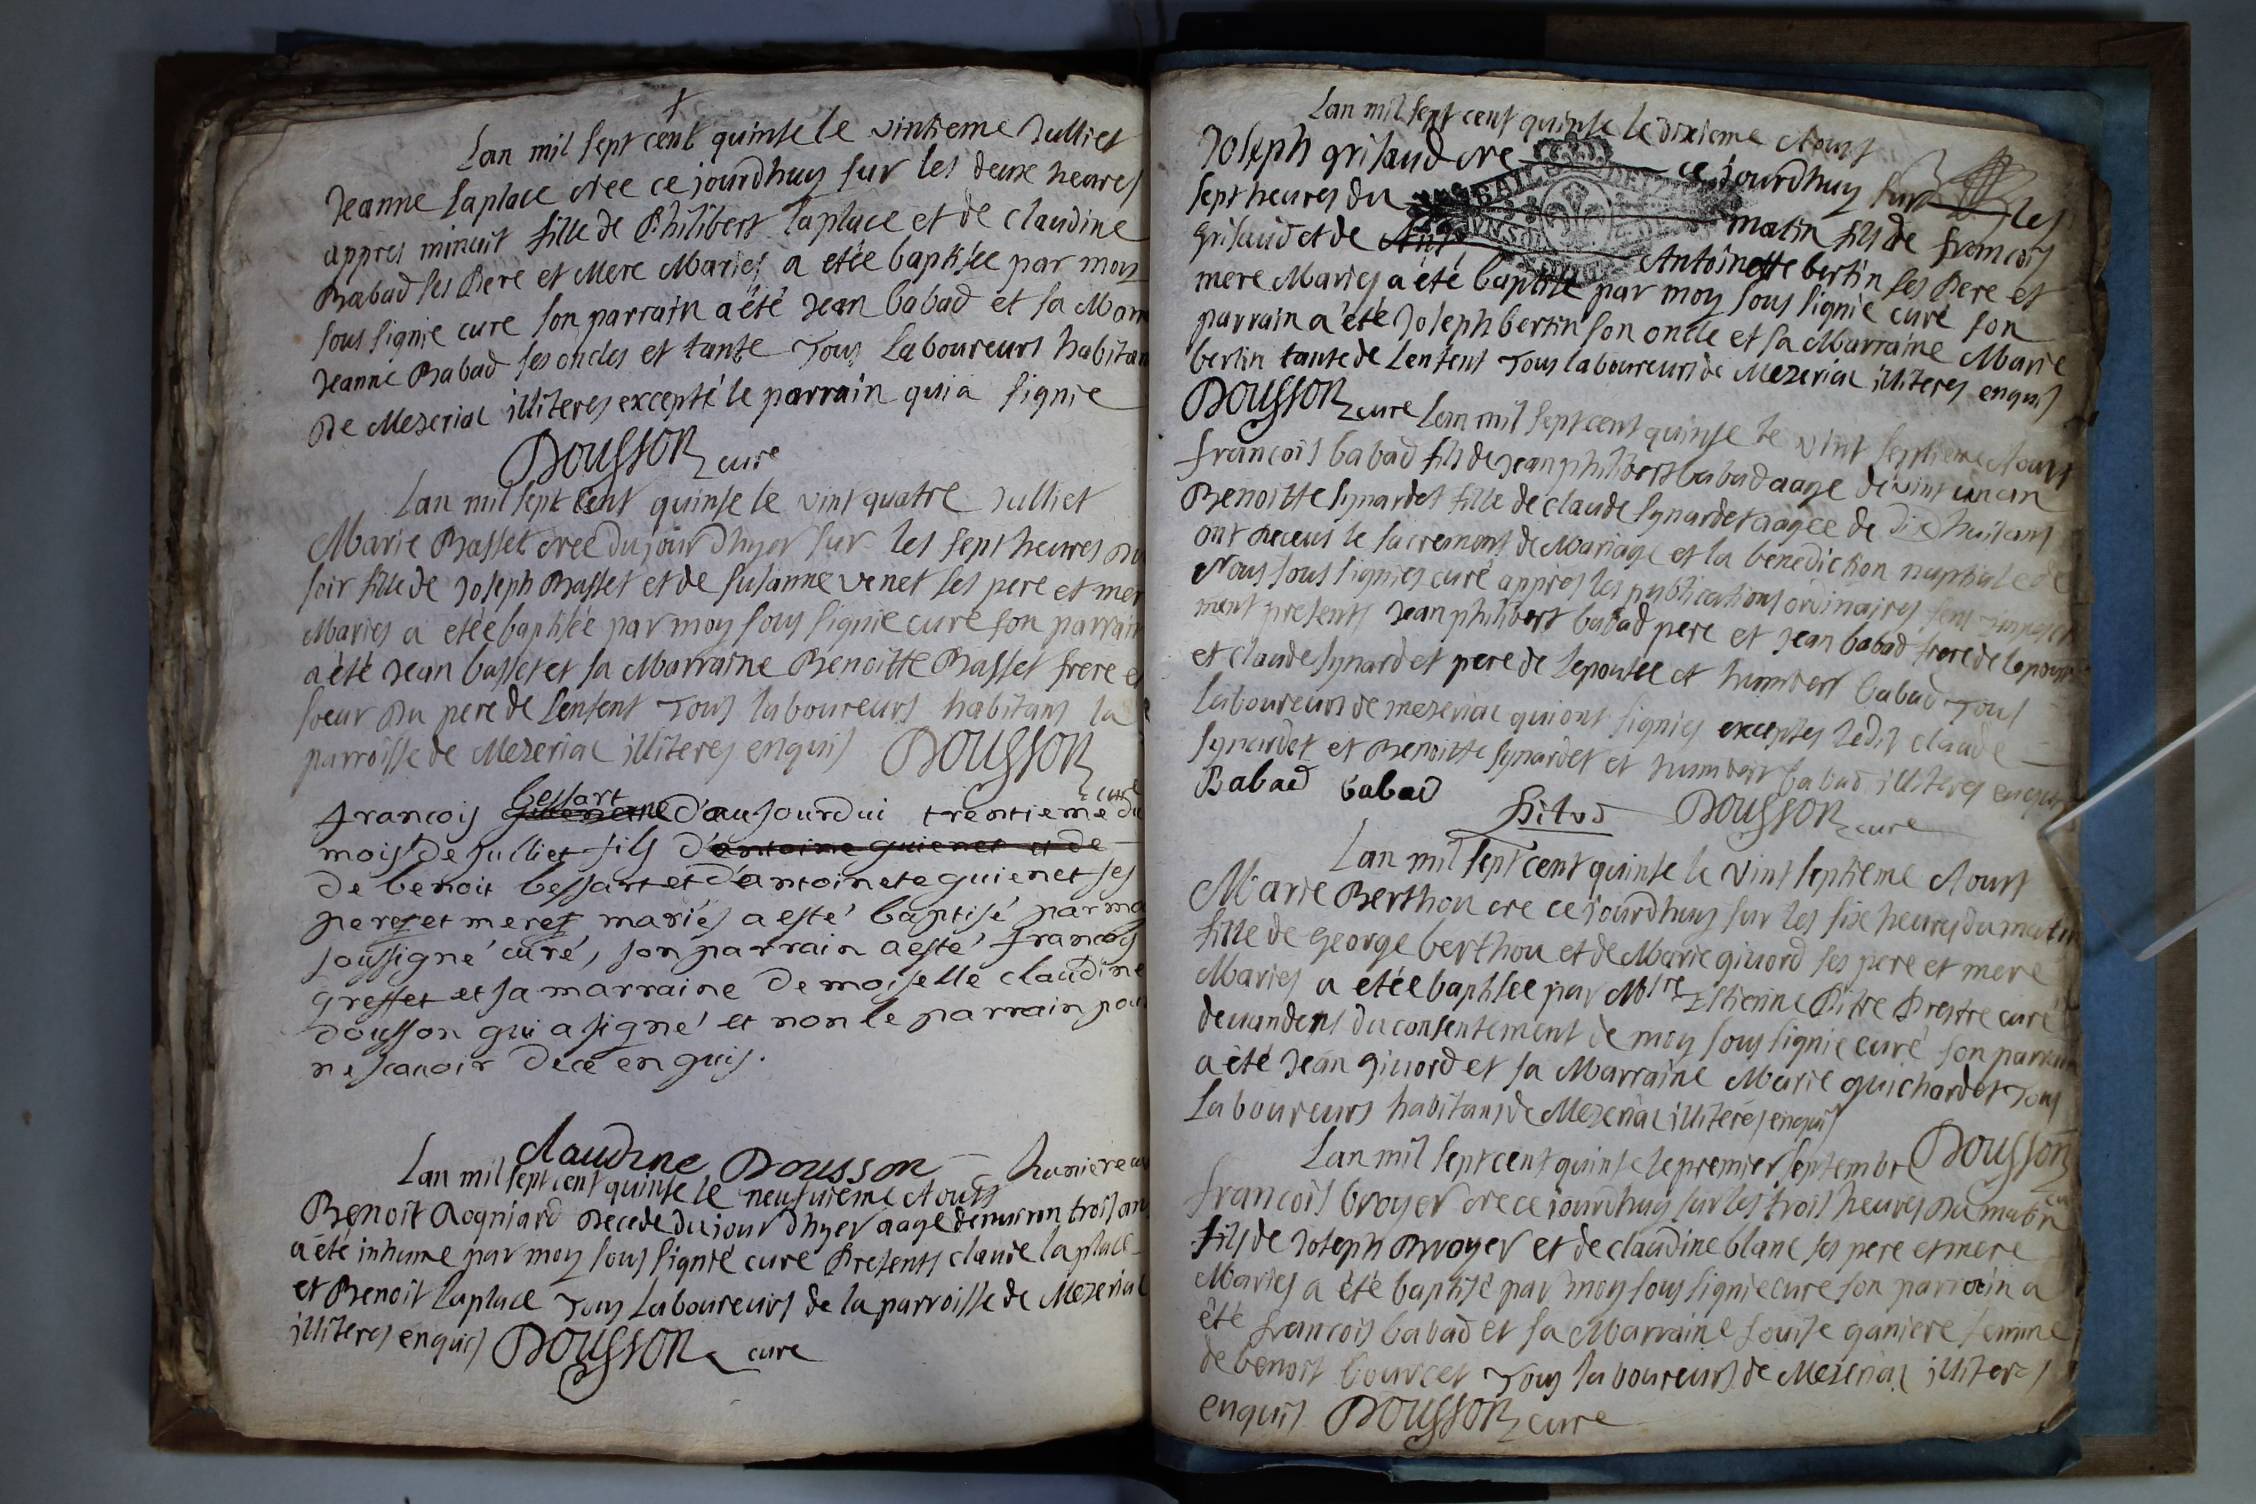 Lan mil sept cent quinse le vintieme Julliet
Jeanne Laplace née ce jourdhuy sur les deux heures
appres minuit fille de Philibert Laplace et de claudine
Babad ses Pere et Mere Maries a etée baptisée par moy
sous signie cure son parrain a été Jean babad et sa Marr
Jeanne Babad ses oncles et tante Tous Laboureurs habitan
De Mezeriac illiteres excepté le parrain qui a signie
Dousson cure
Lan mil sept cent quinse le vint quatre Julliet
Marie Basset nee du jour dhyer sur les sept heures du
soir fille de Joseph Basset et de susanne venet ses pere et mer
Maries a etée baptisée par moy sous signie curé son parrain
a été Jean basset et sa Marraine Benoitte Basset frere et
soeur Du pere de Lenfent Tous laboureurs habitans la
parroisse de Mezeriac illiteres enquis Dousson cure
bessart
francois né d'aujourdui trentieme du
mois de julliet fils d'antoine guienet et de
de benoit bessart et d'antoinete guienet ses
peres et meres mariés a esté baptisé par mo
soussigné curé, son parrain a esté francois
greffet et sa marraine Demoiselle claudine
dousson qui a signé et non le parrain pou
ne scavoir de ce enquis.
claudine Dousson
Lan mil sept cent quinse le neufvieme Aoust
Benoit Rogniard Decede du jour dhyer aage denviron trois ans
a été inhume par moy sous signié curé Presents claude laplace
et Benoit Laplace Tous Laboureurs de la parroisse de Mezeriac
illiteres enquis Dousson cure
Lan mil sept cent quinse le dixieme Aoust
Joseph grisaud né ce jourdhuy sur les
sept heures du matin fils de francois
grisaud et de Antoinette bertin ses Pere et
mere Maries a été baptisé par moy sous signié curé son
parrain a été Joseph bertin son oncle et sa Marraine Marie
bertin tante de Lenfent Tous laboureurs de Mezeriac illiteres enquis
Dousson cure Lan mil sept cent quinse le vint septieme Aoust
francois babad fils de Jean philibert babad aage de vint un an
Benoitte synardet fille de claude synardet aagee de dix huit ans
ont receus le sacrement de Mariage et la benediction nuptiale de
Nous sous signies curé appres les publications ordinaires sens
ment presents Jean philibert babad pere et Jean babad frere de lepoux
et claude synardet pere de Lepousee et humbert babad Tous
laboureurs de mezeriac qui ont signies exceptes Ledit claude
synardet et Benoitte synardet et humbert babad illiteres enquis
Babad babad
Dousson cure
Lan mil sept cent quinse le vint septieme Aoust
Marie Berthou née ce jourdhuy sur les six heures du matin
fille de George berthou et de Marie givord ses pere et mere
Maries a etée baptisee par Mtre Estienne Pitre Prestre curé
de vandens du consentement de moy sous signie curé son parrain
a été Jean givord et sa Marraine Marie guichardet Tous
Laboureurs habitans de Mezeriac illiterés enquis
Dousson
Lan mil sept cent quinse le premier septembre
francois broyer né ce jourdhuy sur les trois heures Du matin
fils de Joseph Broyer et de claudine blanc ses pere et mere
Maries a été baptisé par moy sous signie cure son parrain a
été francois babad et sa Marraine Louise ganiere femme
de benoit bourcet Tous laboureurs de Mezeriac illiteres
enquis Dousson cure